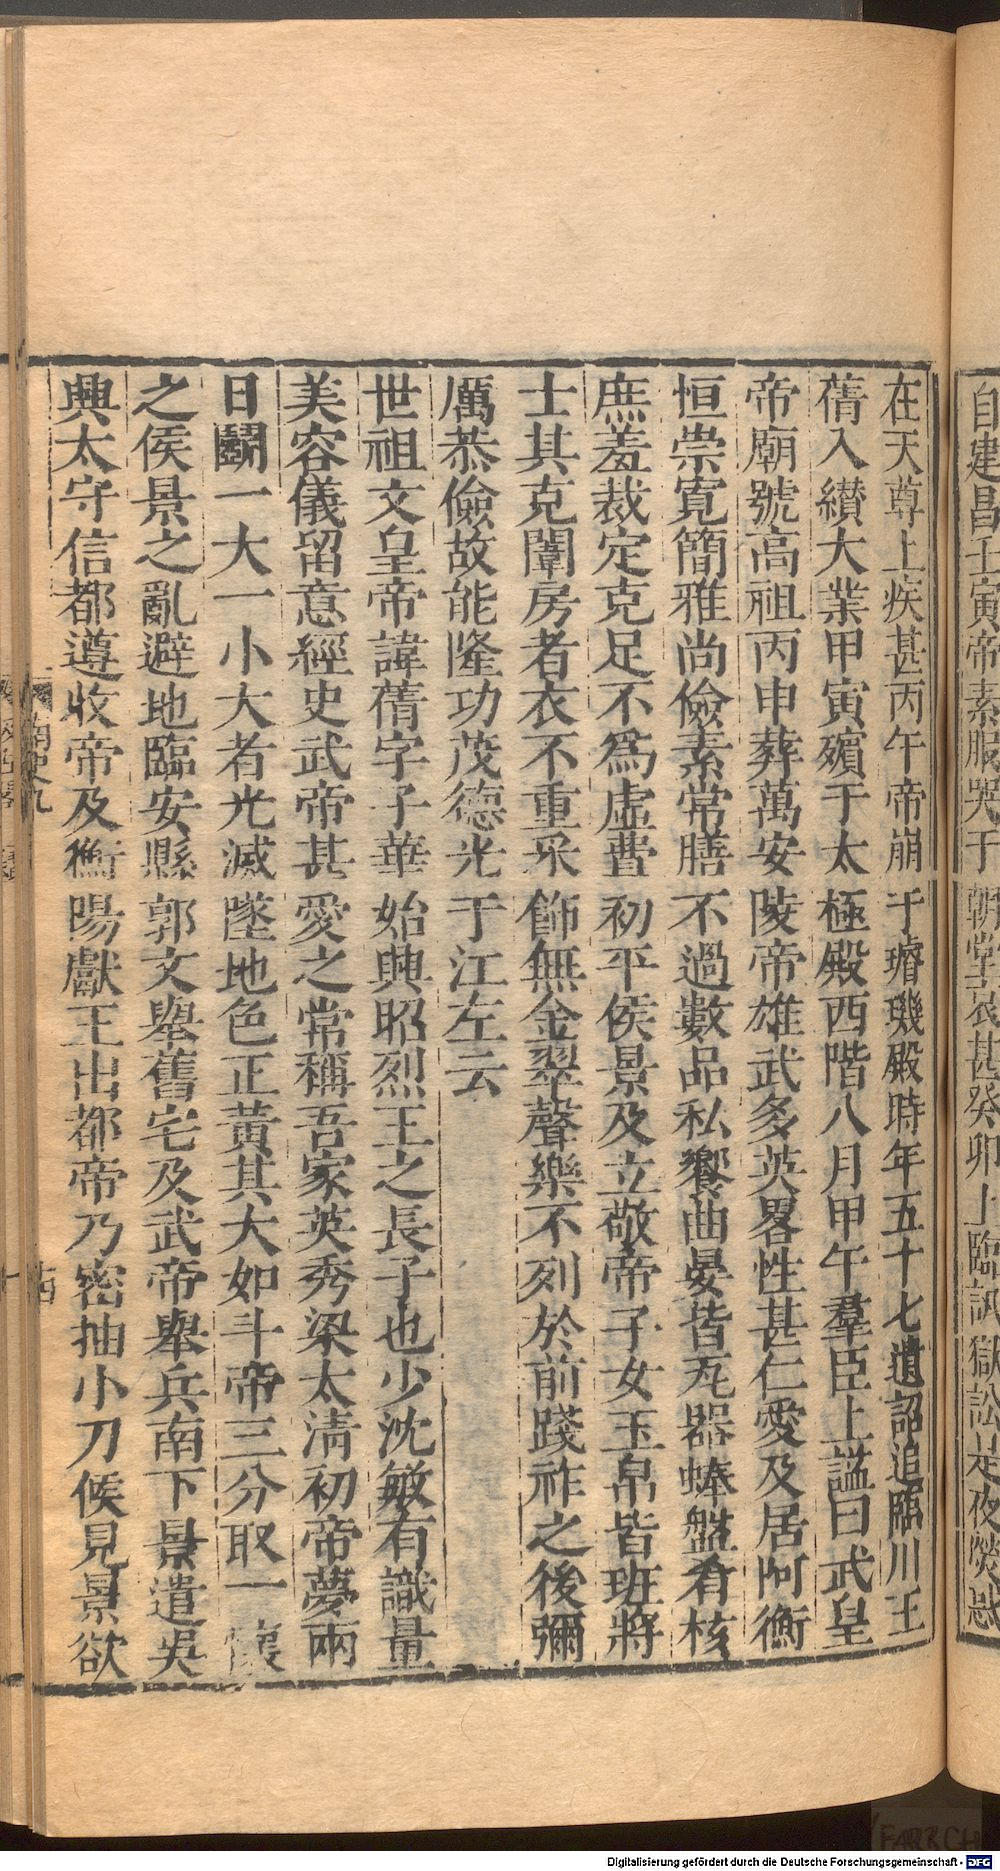 自建昌壬寅帝素服哭于朝堂哀甚癸卯上臨訊獄訟是夜熒惑
在天尊上疾甚丙午帝崩于璿璣殿時年五十七遺詔追臨川王
蒨入纘大業甲寅殯于太極殿西階八月甲午羣臣上諡曰武皇
帝廟號高祖丙申葬萬安陵帝雄武多英畧性甚仁愛及居阿衡
恒崇寬簡雅尚儉素常膳不過數品私饗曲宴皆瓦器蚌盤肴核
庶羞裁定克足不爲虛費初平侯景及立敬帝子女玉帛皆班將
士其克闈房者衣不重采飾無金翠聲樂不列於前踐祚之後彌
厲恭儉故能隆功茂德光于江左云
世祖文皇帝諱蒨字子華始興昭烈王之長子也少沈敏有識量
美容儀留意經史武帝甚愛之常稱吾家英秀梁太清初帝夢兩
日鬭一大一小大者光滅墜地色正黃其大如斗帝三分取一懷
之侯景之亂避地臨安縣郭文舉舊宅及武帝舉兵南下景遣吳
興太守信都遵收帝及衡陽獻王出都帝乃密抽小刀候見景欲
南史九
十四
Digitalisierung gefördert durch die Deutsche Forschungsgemeinschaft - DFG